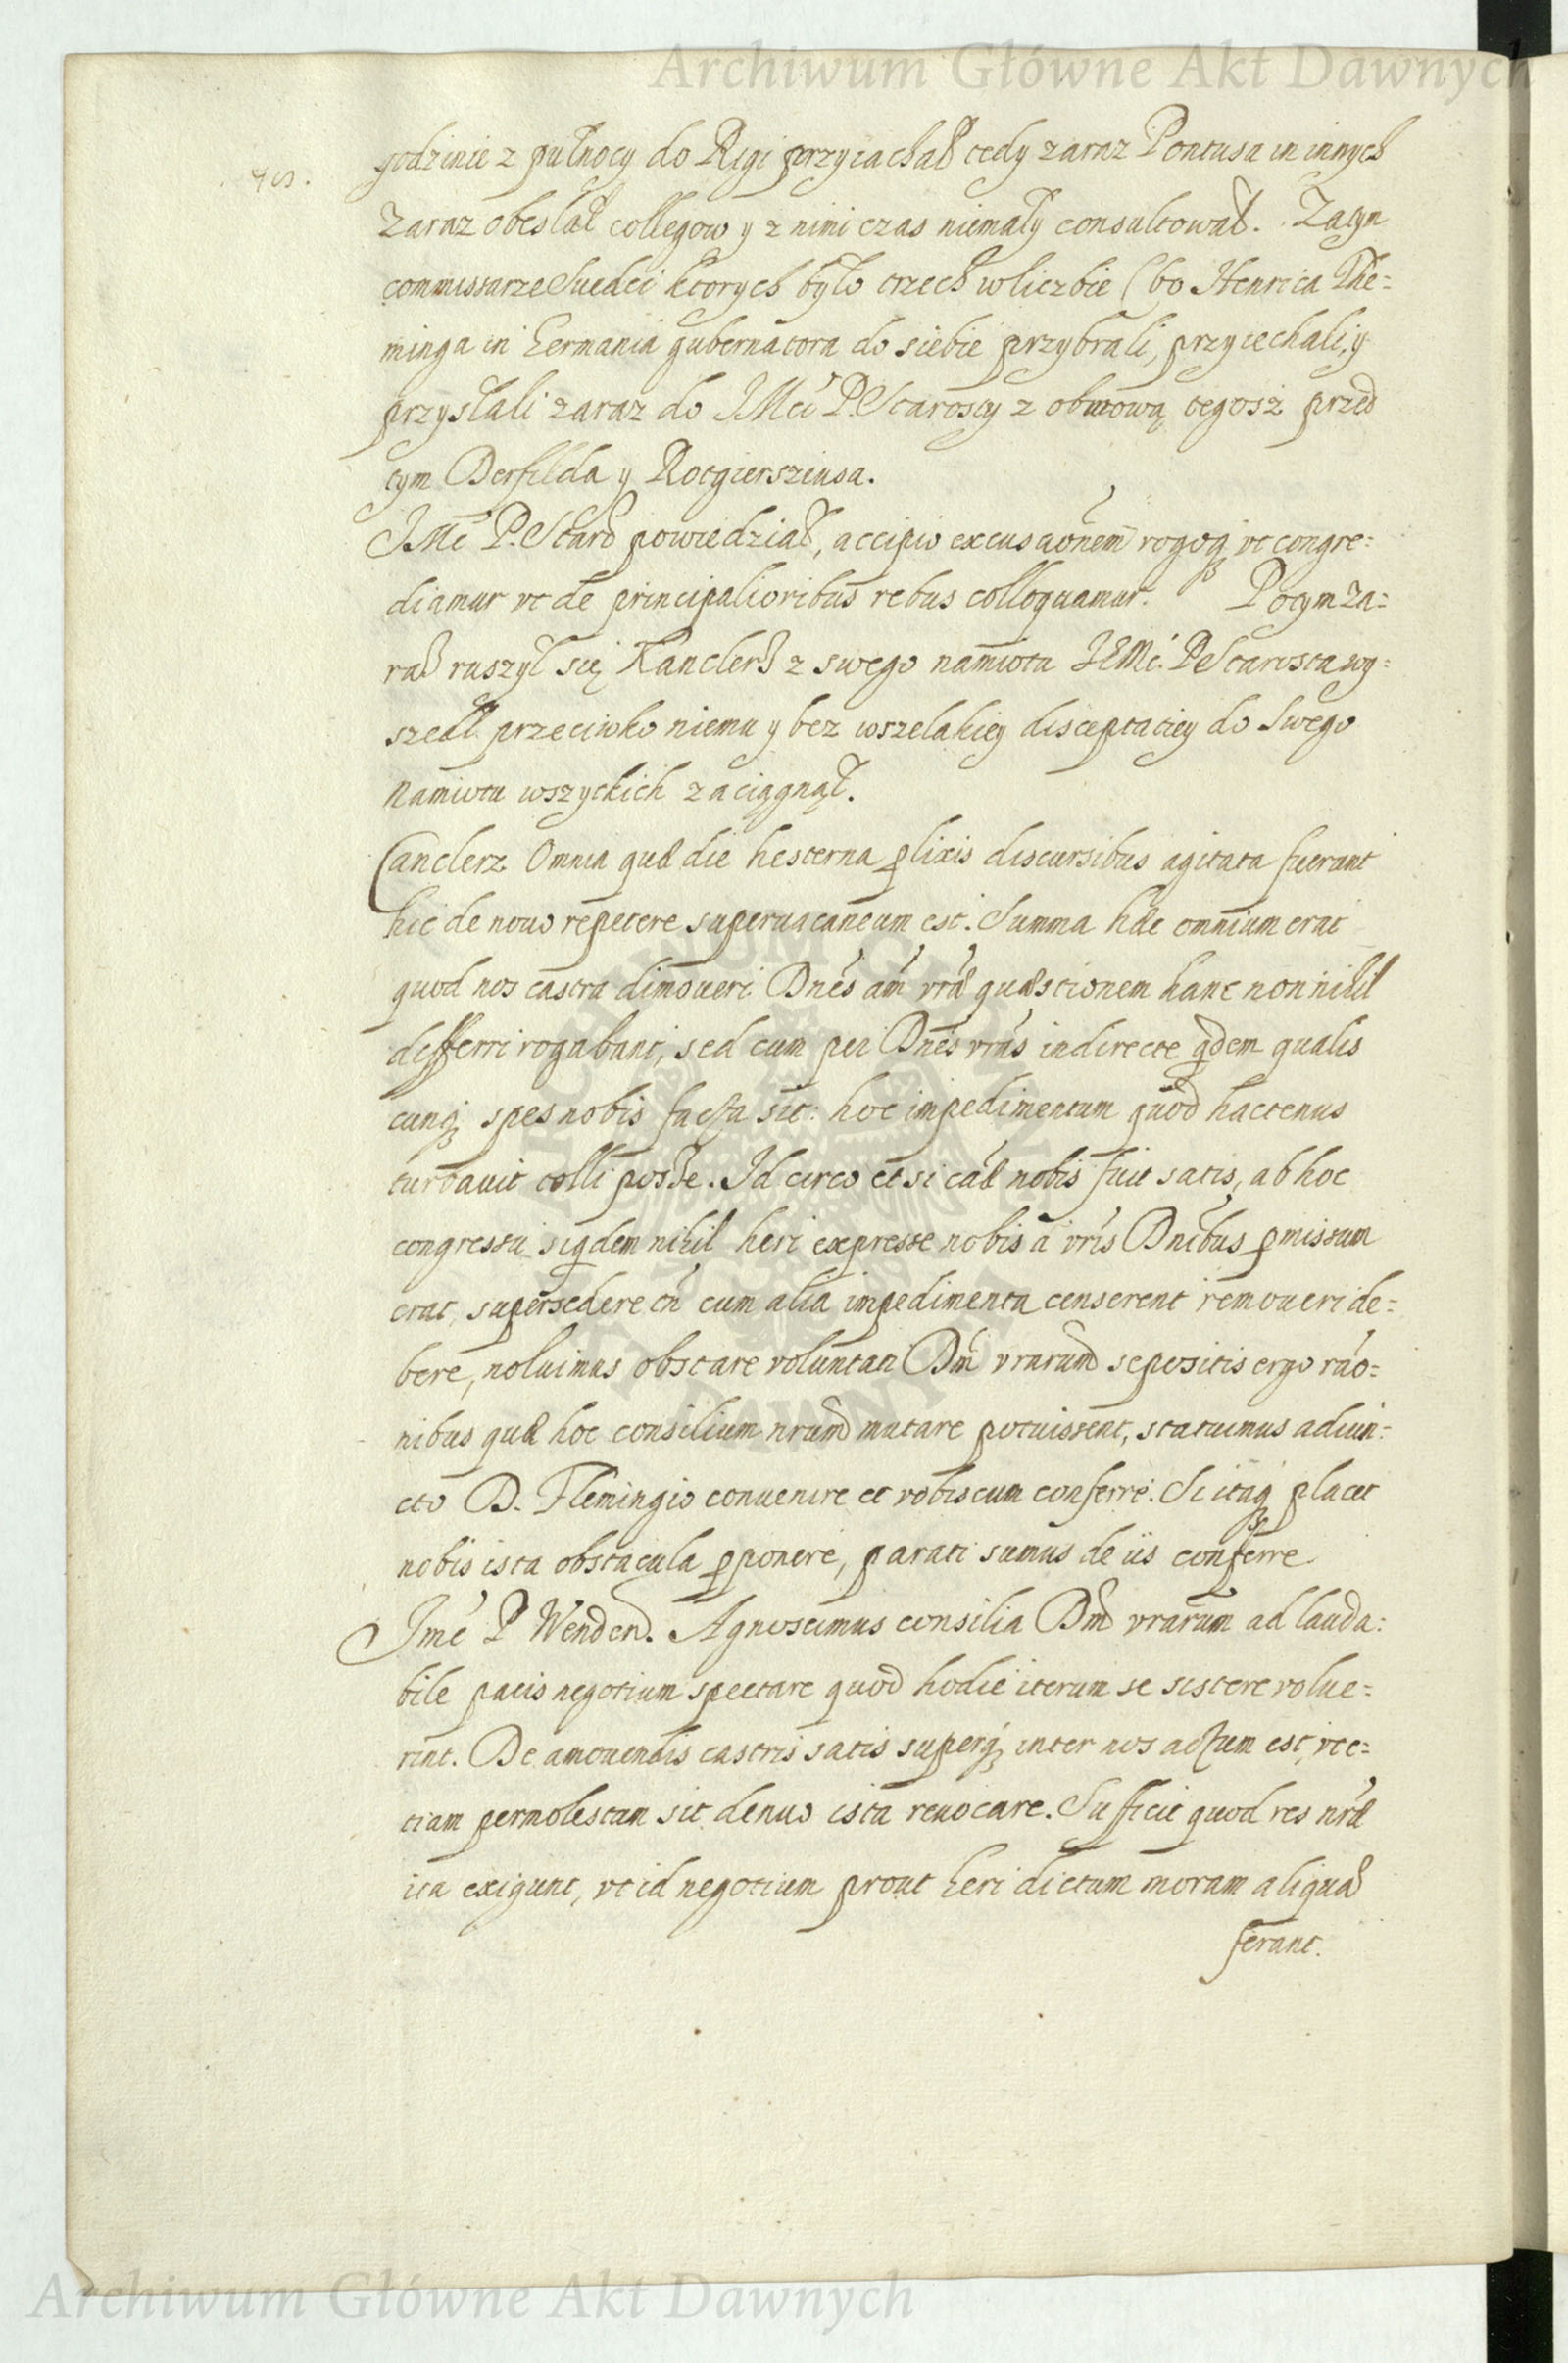 Archiwum Główne Akt Dawnych
godzinie z pułnocy do Rigi przyiachał tedy zaraz Pontusa in innych
zaraz obesłał collegow y z nimi czas niemały consultował. Zatym
commissarze Suedci ktorych było trzech w liczbie (bo Henrica Phe=
minga in Germania gubernatora do siebie przybrali, przyiechali, y
przysłali zaraz do JMci P. Starosty z obmową tegosz przed
tym Derfilda y Rotgierszinsa.
JMć P. Staro powiedział, accipio excusaōnem rogoq₃ vt congre=
diamur vt de principalioribus rebus colloquamur. Potym za=
raz ruszył się Kanclerz z swego namiotu JEMć. P. Starosta wy=
szedł przeciwko niemu y bez wszelakiey disceptaciey do swego
namiotu wszyckich zaciągnął.
Canclerz Omnia quæ die hesterna plixis discursibus agitata fuerant
hic de nouo repetere superuacaneum est. Summa hæc omnium erat
quod nos castra dimoueri Dnēs am̄ vrǣ quæstionem hanc nonnihil
differri rogabant, sed cum per Dnēs vrās indirecte qdem qualis
cunq₃ spes nobis facta sit: hoc impedimentum quod hactenus
turbauit tolli posse. Id circo etsi cāæ nobis fuit satis, ab hoc
congressu siqdem nihil heri expresse nobis a vrīs Dnībus pmissum
erat, supersedere tn̄ cum alia impedimenta censerent remoueri de=
bere, noluimus obstare voluntati Dm̄ vrarum sepositis ergo rāo=
nibus quæ hoc consilium nrum mutare potuissent, statuimus adiun=
cto D. Flemingio conuenire et vobiscum conferre. Si itaq₃ placet
nobis ista obstacula pponere, parati sumus de iis conferre
Jmć P Wenden. Agnoscimus consilia Dm̄ vrarum ad lauda:
bile pacis negotium spectare quod hodie iterum se sistere volue=
rint. De amouendis castris satis superq₃ inter nos actum est, vt e=
tiam permolestum sit denuo ista reuocare. Sufficit quod res nrǣ
ita exigunt, vt id negotium prout heri dictum moram aliquā
ferant.
Archiwum Główne Akt Dawnych